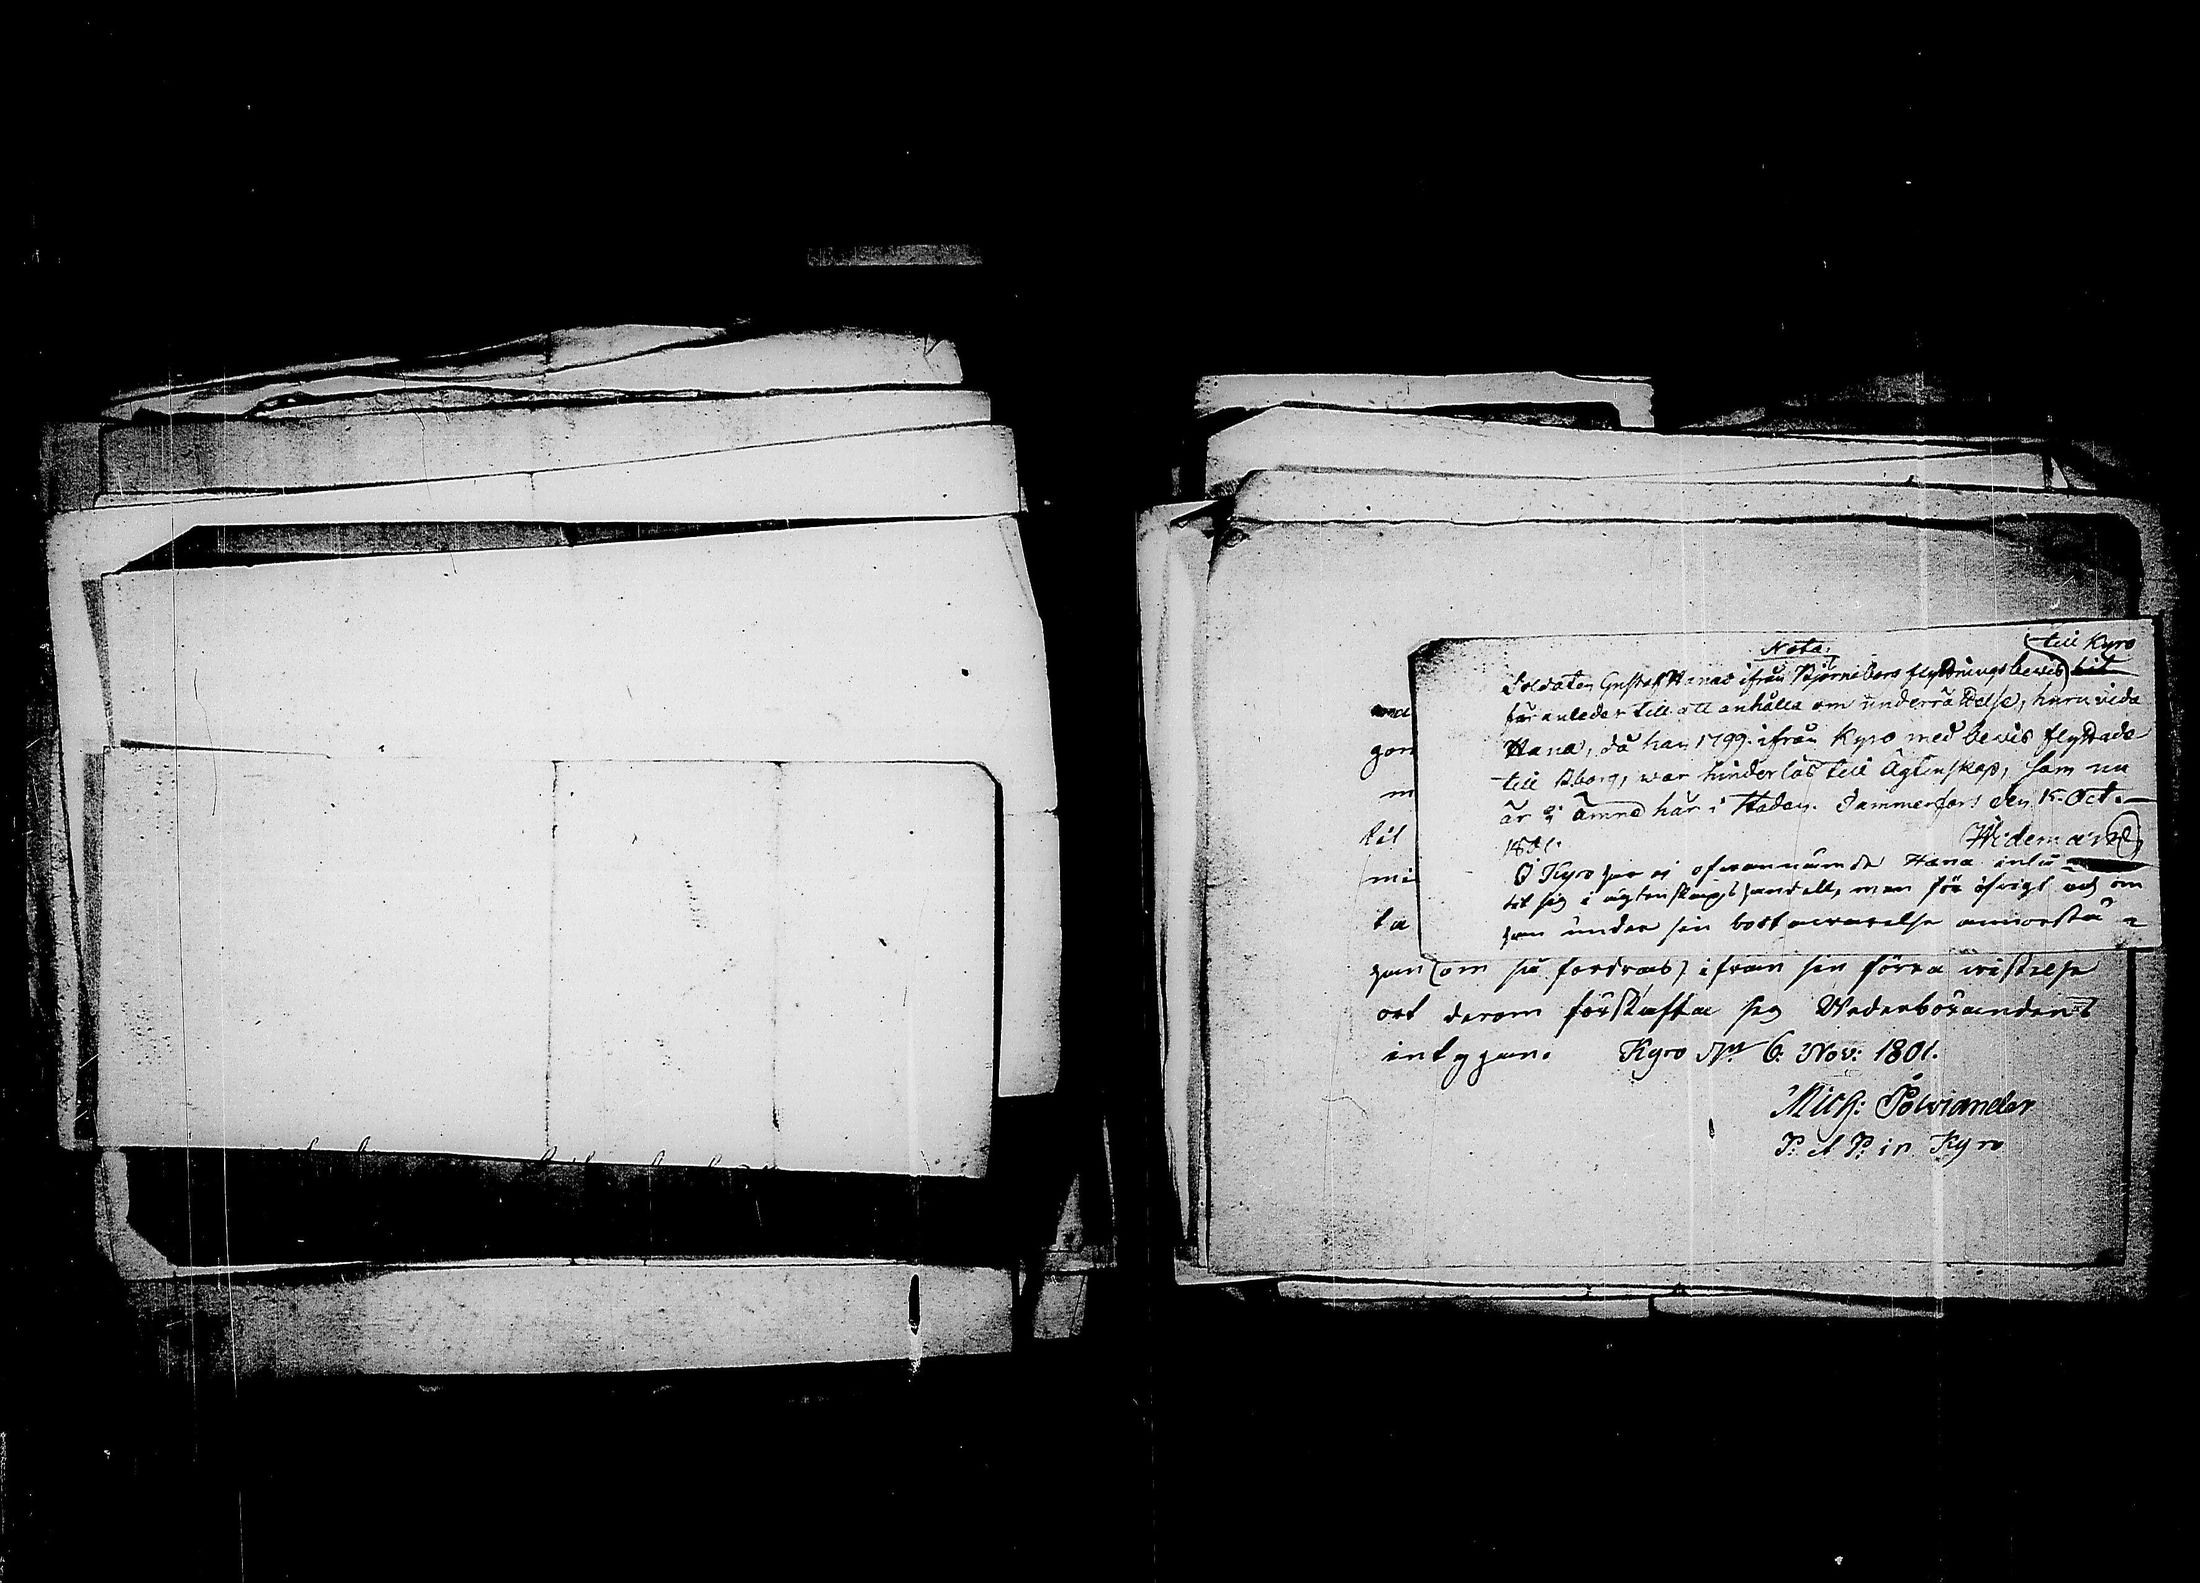 Nota. till Kyro
Soldaten Gustaf Hanas ifrån Björneborg flyttningsbevis hit
föranleder till att anhålla om underrättelse, huruvida
Hana, då han 1799. ifrån Kyro med bevis flyttade
till Bborg, war hinderlös till Ägtenskap, som nu
är i ämne här i Staden. Tammerfors den 15. Oct.
1801. Widemark
I Kyro har ej ofvannämde Hana inlå
tit sig i ägtenskaps handell, men för öfrigt
han under sin bortovarelse annorstä
ma
gon
m
til
mi
ta
han (om så fordras) ifrån sin förra wistelse
ort derom förskaffa sig Wederbörandens
intygan. Kyro den 6. Nov: 1801.
Mich: Polviander
P: et P: in Kyro